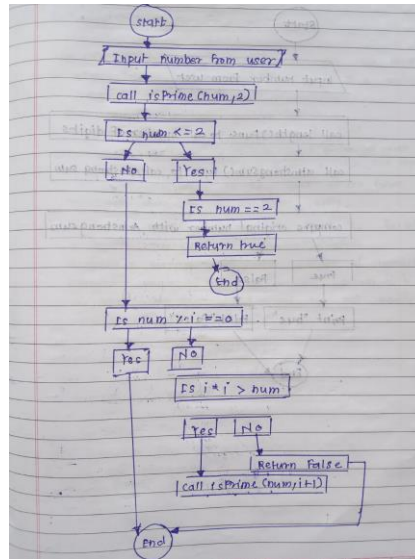 Start
Input number from user
call isPrime(num,2)
Is num <= 2
No Yes
Is num == 2
Return true
End
Is num % i == 0
Yes No
Is i * i > num
Yes No
Return False
call isPrime(num,i+1)
End